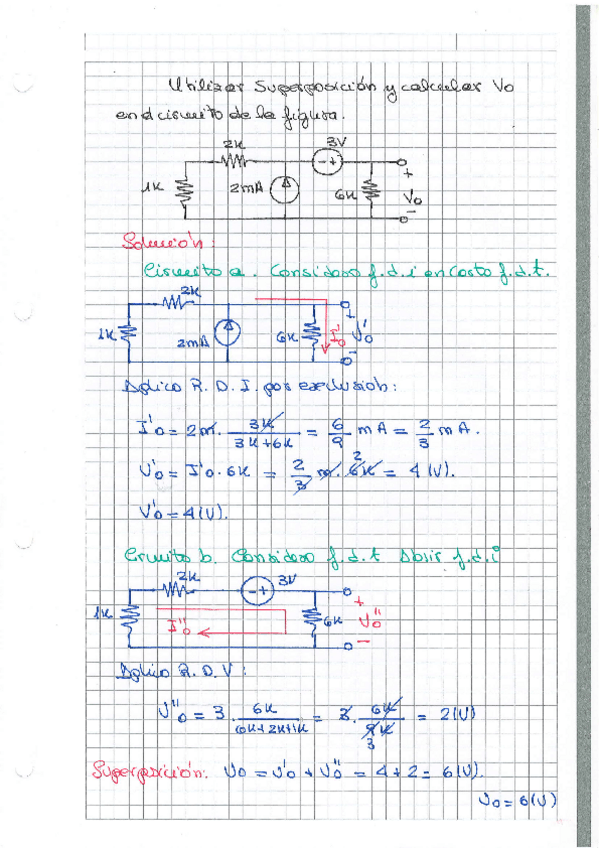 Utilizar Superposición y calcular Vo
en el circuito de la figura.
2K 3V
1K 2mA 6K + Vo -
Solución:
Circuito a. Considero f.d.i en Corto f.d.t.
2K
1K 2mA 6K I'o + V'o -
Aplico R. D. I. por exclusión:
I'o = 2m. 3K / 3K+6K = 6/9 mA = 2/3 mA.
V'o = I'o · 6K = 2/3 m. 6K 2 = 4 (V).
V'o = 4(V).
Circuito b. Considero f.d.t Abrir f.d.i
2K -+ 3V
1K I''o 6K + V''o -
Aplico R. D. V:
V''o = 3 · 6K / 6K+2K+1K = 3 · 6K / 9K 3 = 2(V)
Superposición: Vo = V'o + V''o = 4+2 = 6(V).
Vo = 6(V)